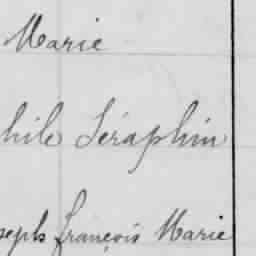 Marie
hile Séraphin
seph François Marie